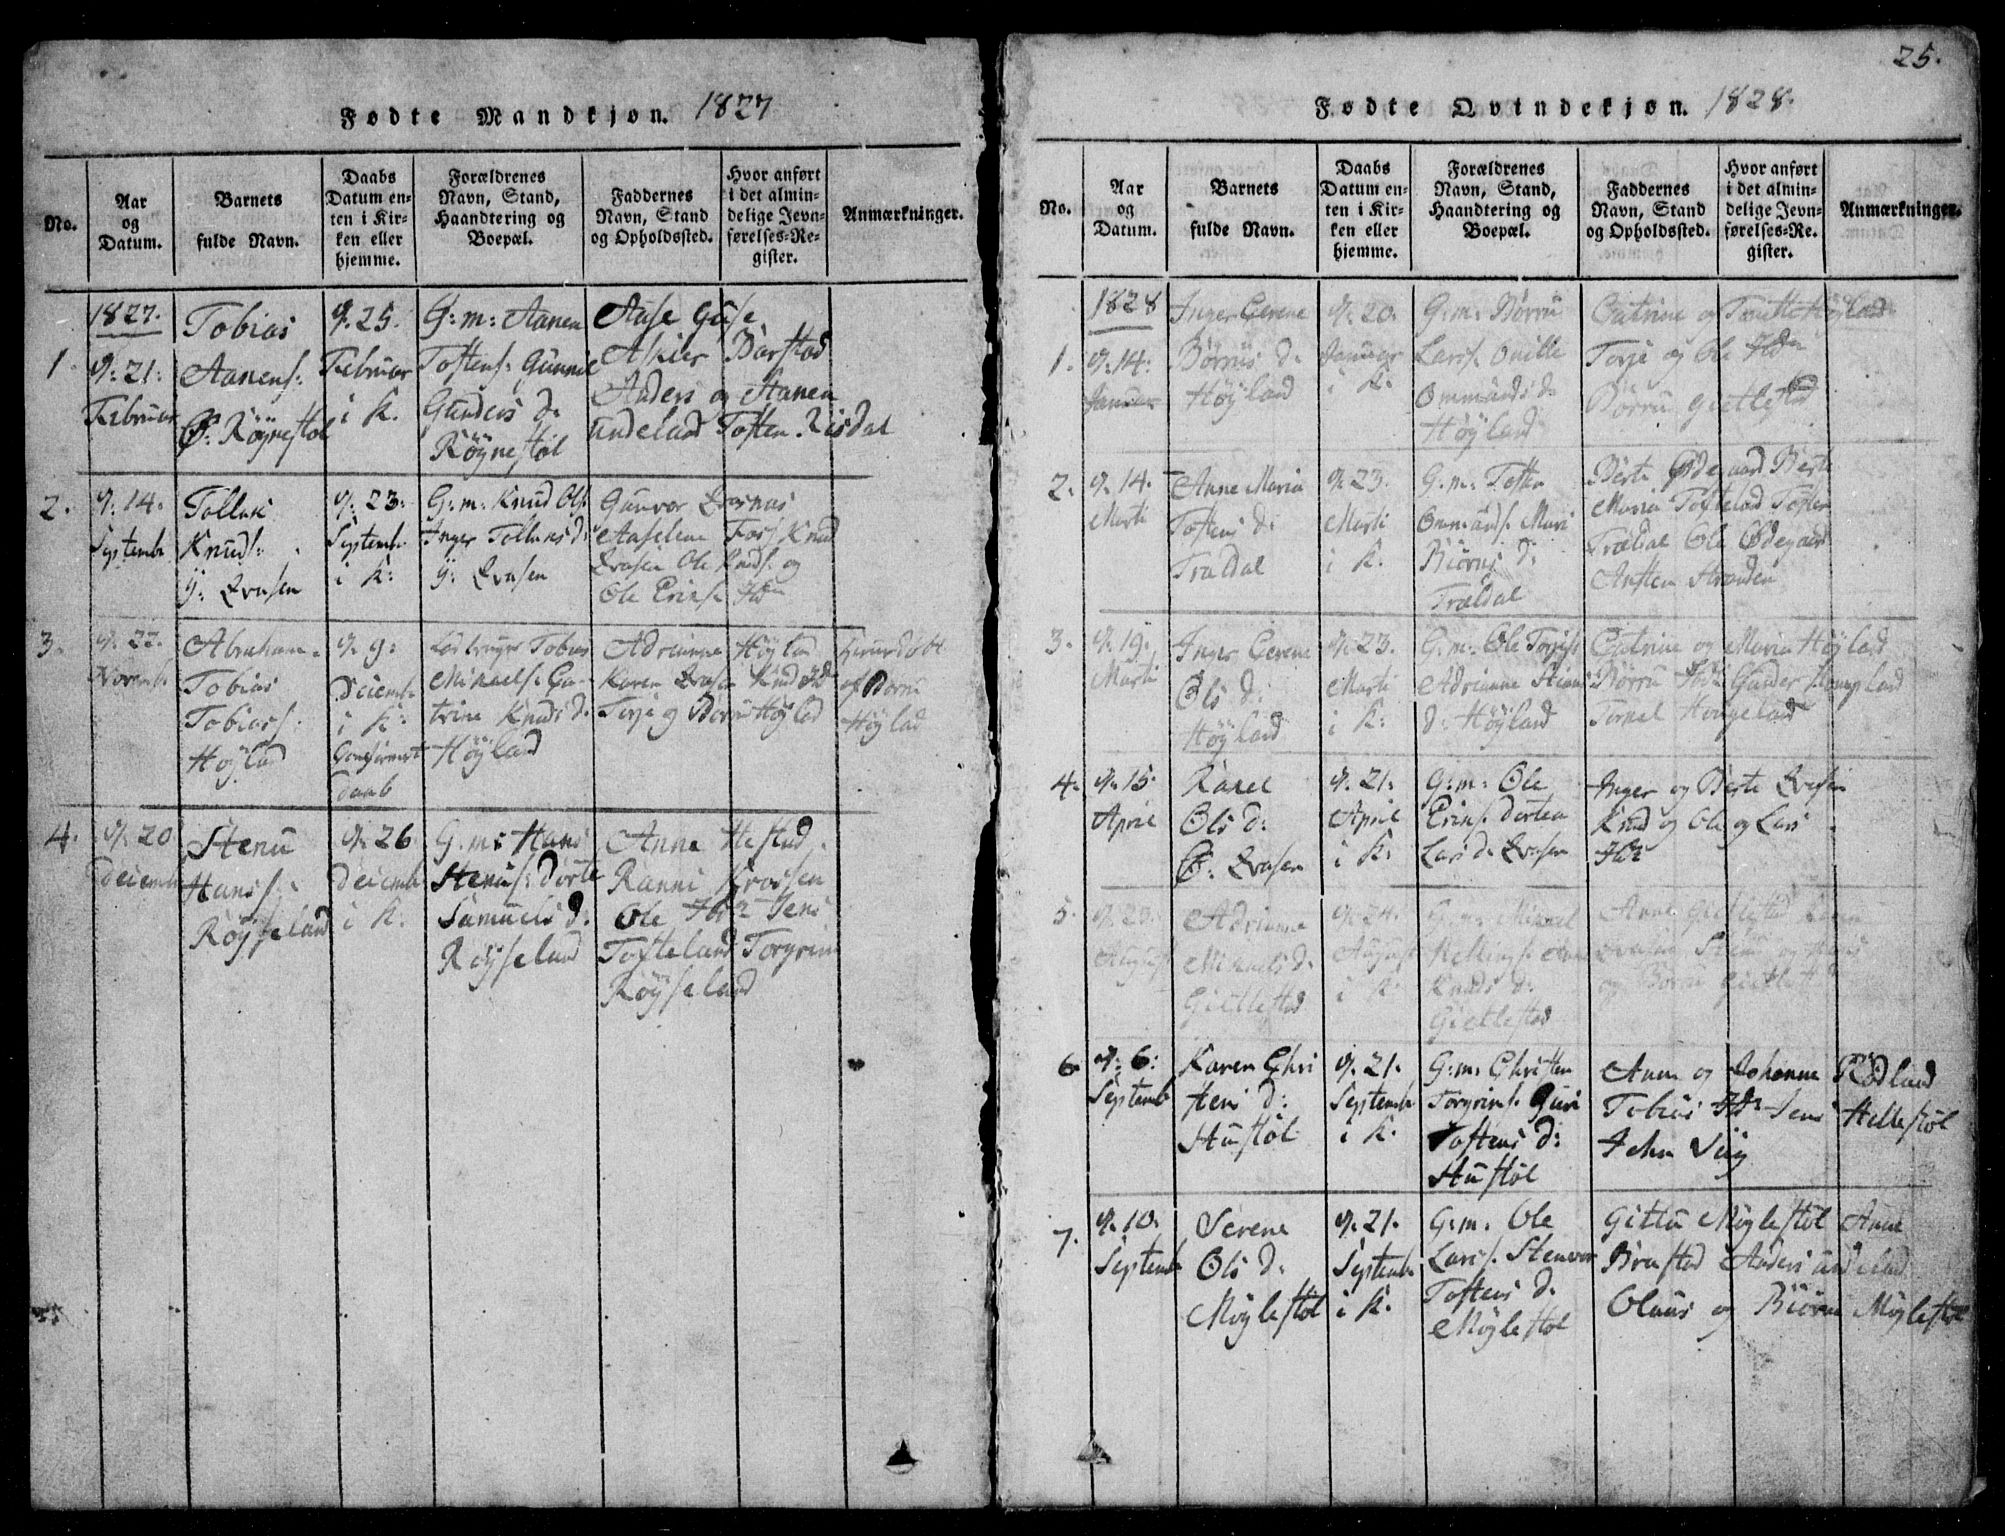 Fødte Mandkjøn. 1827
No.
Aar og Datum.
Barnets fulde Navn.
Daabs Datum enten i Kirken eller hjemme.
Forældrenes Navn, Stand, Haandtering og Boepæl.
Faddernes Navn, Stand og Opholdssted.
Hvor anført i det almindelige Jevnførelses-Register.
Anmærkninger.
1.
1827.
d. 21:
Februar
Tobias
Aanens:
Ø: Röynestöl
d. 25.
Februar
i K.
G: m: Aanen
Tostens: Gunnil
Gunders d:
Röynestöl
Aase
Barstad
Anders og Aanen
undeland Tosten Risdal
2.
d. 14.
Septembr
Tollak
Knuds:
Y: Evasen
d. 23.
Septembr
i K:
G: m. Knud Ols.
Inger Tollaks d:
Y: Evasen
Gunvor
Aaselene Foss Knud
Evasen Ole Knuds. og
Ole
3.
d. 22.
Novemb:
Abraham
Tobias
Tobias s:
Höyland
d. 9:
Decemb
i K:
Daab
Tobias
Mikaels. Ca-
trine Knuds d:
Höyland
Adrianne Höyland
Karen Evasen Knud
Terje og Börru Höyland
af Börru
Höyland
4.
d. 20
Decemb
Stenu
Hans s:
Röyseland
d. 26
Decemb:
i K.
G. m: Hans
Stenus: Dorte
Samuels d:
Röyseland
Anne Hestad.
Ranni Krossen
Ole Ibd: Jens
Tofteland Torgrim
Röyseland
25.
Fødte Qvindekjøn. 1828.
No.
Aar og Datum.
Barnets fulde Navn.
Daabs Datum enten i Kirken eller hjemme.
Forældrenes Navn, Stand, Haandtering og Boepæl.
Faddernes Navn, Stand og Opholdssted.
Hvor anført i det almindelige Jevnførelses-Register.
Anmærkninger.
1.
1828
d. 14:
Januar
Inger Serene
Börrus d:
Höyland
d. 20.
Januar
i K:
G: m: Börru
Lars.
Ommunds d:
Höyland
Catrine og Höyland
Terje og Ole Ibd:
Börru Gietlestad
2.
d. 14.
Marti
Anne Maria
Tostens d:
Traldal
d. 23.
Marti
i K.
G: m: Tosten
Ommunds. Mari
Biörns d:
Trældal
Berte Ødegaard Berte
Maria Tofteland
Trældal Ole Ødegaard
Austen Stranden
3.
d. 19.
Marti
Inger Serene
Ols d:
Höyland
d. 23.
Marti
i K:
G: m: Ole Terjes.
Adrianne
d: Höyland
Catrine og Maria Höyland
Börru Ibd: Gunder Hougland
Tornel Hougeland
4.
d. 15.
April
Karel
Ols d:
Ø. Evasen
d. 21.
April
i K:
G: m: Ole
Dortea
Lars d: Evasen
Inger og Berte Evasen
Knud og Ole og Lars
Ibd:
5.
d. 23.
August
Adrianne
Mikaels d:
Gietlestad
d. 24.
August
i K.
G: m: Mikael
Anne
Knuds d:
Gietlestad
Anne Gietlestad Karen
Evasen Stenu og Hans
og Börru Gietlestad
6.
d. 6:
Septemb
Karen Chri
stens d:
Hustöl
d. 21.
Septemb
i K.
G: m: Christen
Torgrims. Guri
Tostens d:
Hustöl
Anne og Johanne Rödland
Tobias Ibd: Jens Hellestöl
John
7.
d. 10.
Septemb
Serene
Ols d:
Möglestöl
d. 21.
Septemb
i K.
G: m. Ole
Lars s. Stenvor
Tostens d.
Möglestöl
Gitlu Möglestöl Anne
Brastad Anders undeland
Olaus og Biörn Möglestöl